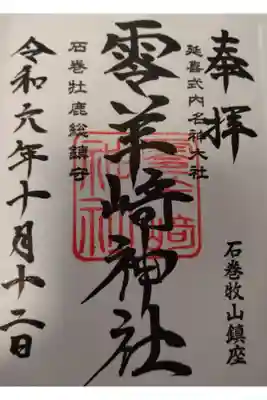 奉拝
石巻牧山鎮座
延喜式内名神大社
零羊﨑神社
石巻牡鹿総鎮守
令和六年十月十二日